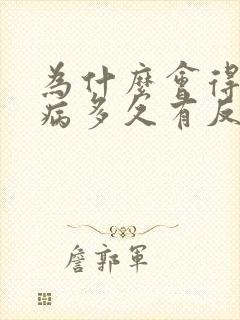 為什麼會得
病多久有反
詹郭軍